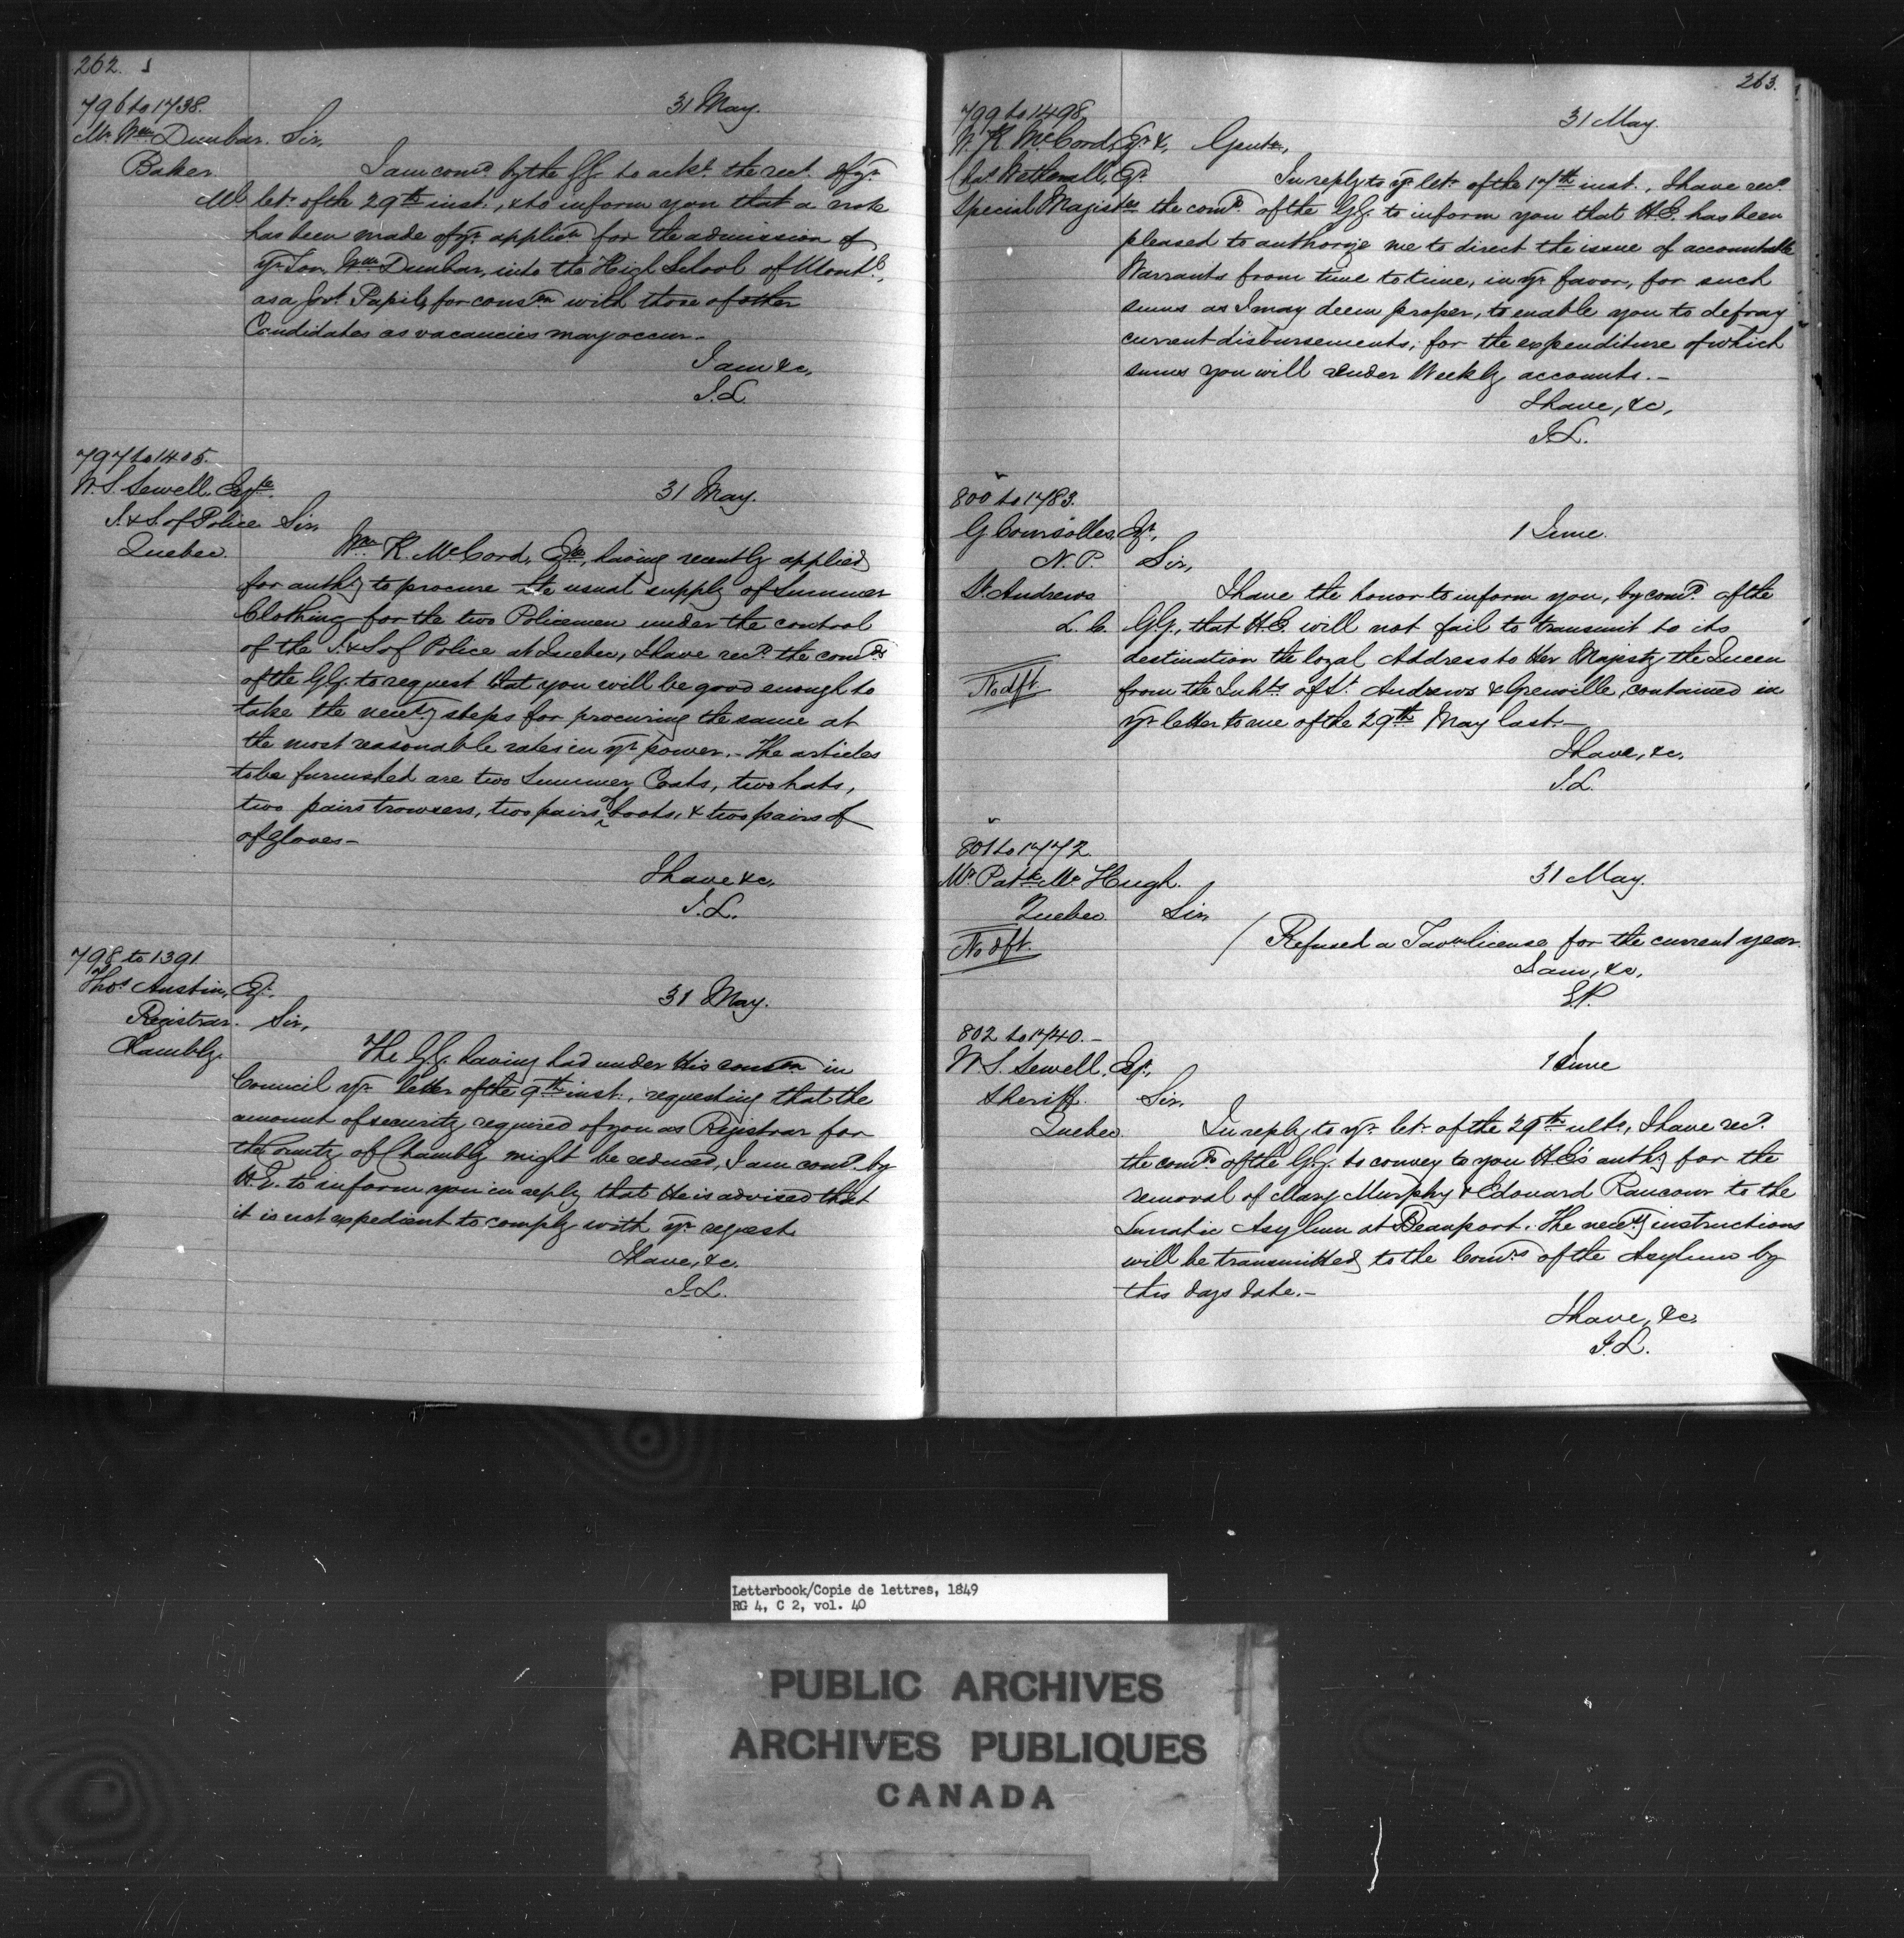 262.
796 to 1738.
31 May.
Mr. Wm. Dunbar. Sir,
Baker.
I am comd. by the GG. to ackt. the rect. of yr.
Ml. let. of the 29th inst., & to inform you that a note
has been made of yr. applicn. for the admission of
yr. Son, Wm. Dunbar, into the High School of Montl.,
as a Govt. Pupil, for consn. with those of other
Candidates as vacancies may occur.-
I am &c,
J.L.
797 to 1405.
W. S. Sewell, Esqre.
31 May.
I. & S. of Police Sir,
Quebec.
Wm. K. McCord, Esqe, having recently applied
for authy to procure the usual supply of Summer
Clothing for the two Policemen under the control
of the I. & S of Police at Quebec, I have recd. the comds.
of the GG. to request that you will be good enough to
take the necesy steps for procuring the same at
the most reasonable rates in yr. power.- The articles
to be furnished are two Summer Coats, two hats,
two pairs trowsers, two pairs of boots, & two pairs of
of gloves-
I have &c,
J.L.
798 to 1391
Thos Austin, Esq.,
31 May.
Registrar. Sir,
Chambly.
The G.G. having had under His consn in
Council yr. letter of the 9th inst., requesting that the
amount of security required of you as Registrar for
the County of Chambly might be reduced, I am comd. by
H.E. to inform you in reply that He is advised that
it is not expedient to comply with yr. request.
I have, &c.
J.L.
263.
799 to 1498
31 May.
W. K. McCord, Esqr. &, Gentn,
Chas. Wetherall, Esqr.
In reply to yr. let. of the 17th inst., I have recd.
Special Magistes the comds. of the GG. to inform you that H.E. has been
pleased to authorize me to direct the issue of accountable
Warrants from time to time, in yr. favor, for such
sums as I may deem proper, to enable you to defray
current disbursements; for the expenditure of which
sums you will render Weekly accounts.-
I have, &c,
J.L.
800 to 1783.
G Coursolles, Esqr.,
1 June.
N.P. Sir,
St. Andrews
I have the honor to inform you, by comd. of the
L.C. G.G., that H.E. will not fail to transmit to its
destination the loyal Address to Her Majesty the Queen
No dft.
from the Inhts. of St. Andrews & Grenville, contained in
yr. letter to me of the 29th May last.-
I have, &c.
J.L.
801 to 1772.
Mr. Patk. McHugh.
31 May.
Quebec Sir,
No dft.
/ Refused a Tavn license for the current year.
I am, &c,
E.P.
802 to 1740.-
W S. Sewell, Esqr.,
1 June
Sheriff. Sir,
Quebec.
In reply to yr. let. of the 29th ulto, I have recd.
the comds. of the GG. to convey to you H.E's authy for the
removal of Mary Murphy & Edouard Rancour to the
Lunatic Asylum at Beauport. The necesy instructions
will be transmitted to the Comrs. of the Asylum by
this days date.-
I have, &c.
J.L.
Letterbook/Copie de lettres, 1849
RG 4, C 2, vol. 40
PUBLIC ARCHIVES
ARCHIVES PUBLIQUES
CANADA